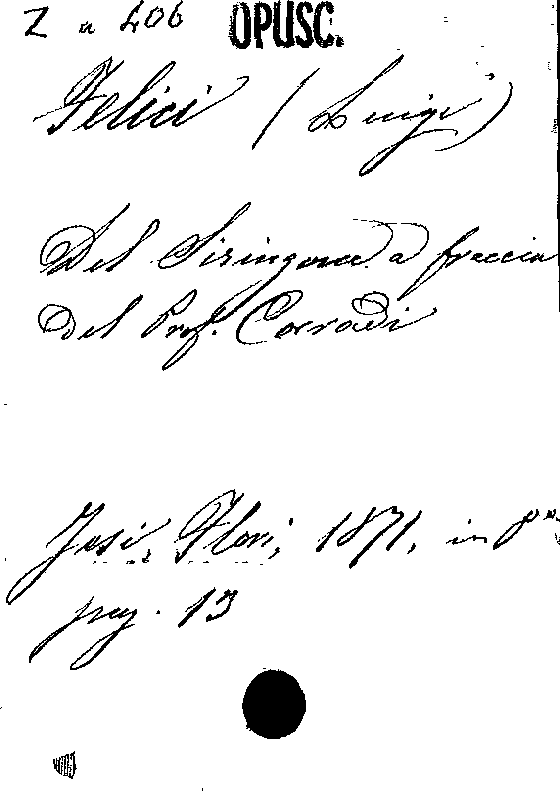 Z a 406 OPUSC.
Felici (Luigi)
Del Siringone a freccia
del Prof. Corradi
Jesi, Flori, 1871, in 8°
pag. 13